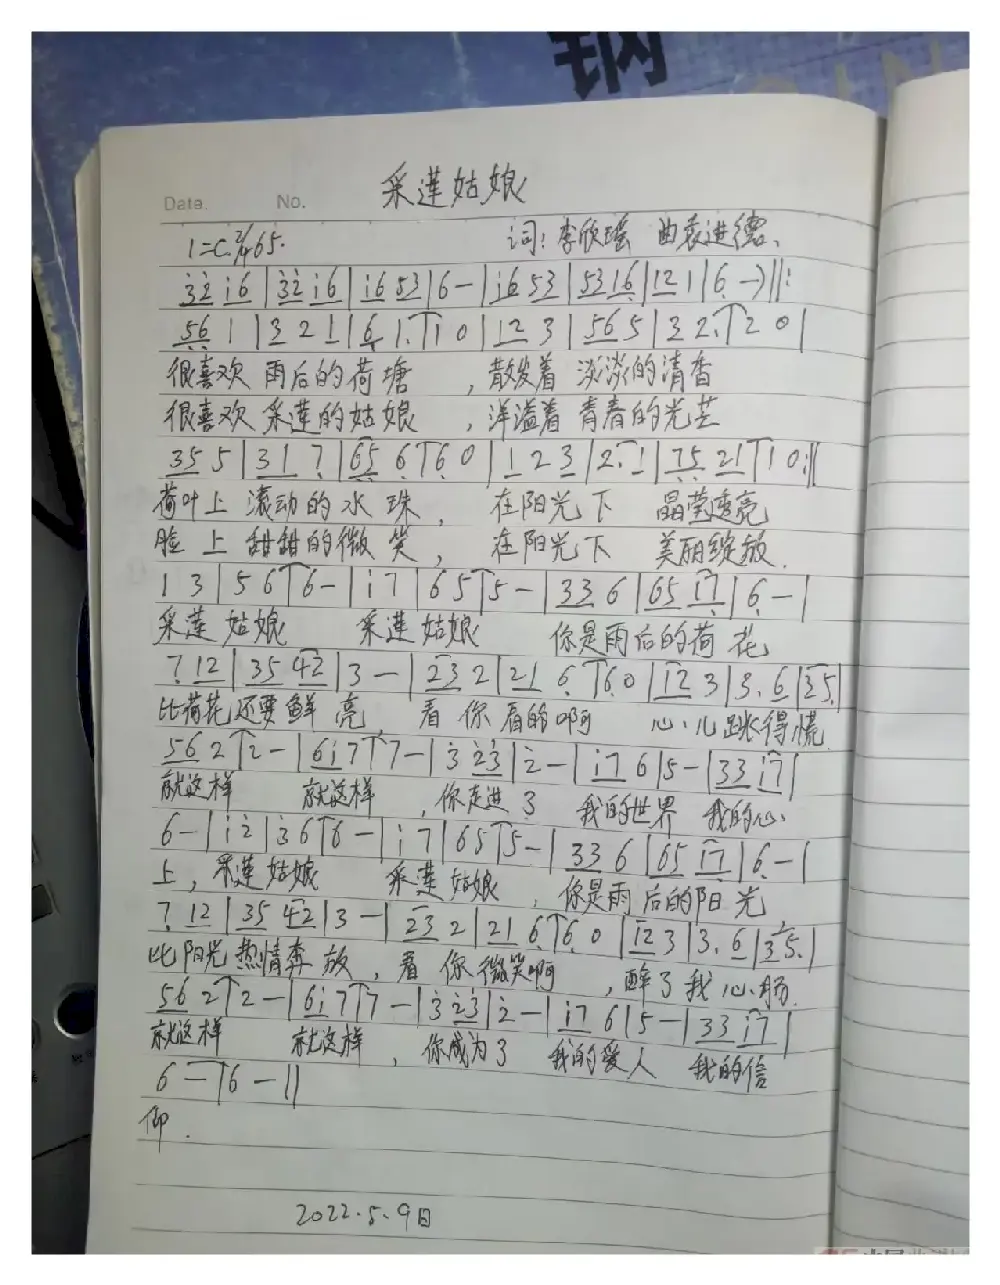 钢
采莲姑娘
Date. No.
1=C 2/4 65. 词:李欣瑶 曲袁进德、
3̇2̇ i6 | 3̇2̇ i6 | i6 53 | 6 - | i6 53 | 53 16 | 12 1 | 6 - ) ‖:
56 1 | 3 2 1 | 6 1. | 1 0 | 12 3 | 56 5 | 3 2. | 2 0 |
很喜欢 雨后的荷塘 ,散发着 淡淡的清香
很喜欢 采莲的姑娘 ,洋溢着 青春的光芒
35 5 | 31 7 | 65 6 | 6 0 | 1 2 3 | 2. 1 | 75 21 | 1 0 :‖
荷叶上 滚动的水 珠, 在阳光下 晶莹透亮
脸上 甜甜的微 笑, 在阳光下 美丽绽放.
1 3 | 5 6 | 6 - | i 7 | 6 5 | 5 - | 33 6 | 65 17 | 6 - |
采莲 姑娘 采莲姑娘 你是雨后的荷 花
7 12 | 35 42 | 3 - | 23 2 | 21 6 | 6 0 | 12 3 | 3. 6 | 35 |
比荷花还要鲜 亮, 看 你看的啊 心儿跳得慌
56 2 | 2 - | 6i 7 | 7 - | 3̇ 2̇3̇ | 2̇ - | i7 6 | 5 - | 33 i7 |
就这样 就这样 ,你走进了 我的世界 我的心
6 - | i 2̇ | 3̇ 6 | 6 - | i 7 | 6 5 | 5 - | 33 6 | 65 17 | 6 - |
上,采莲姑娘 采莲姑娘 ,你是雨后的阳光
7 12 | 35 42 | 3 - | 23 2 | 21 6 | 6 0 | 12 3 | 3. 6 | 35 |
比阳光热情奔 放,看 你微笑啊 ,醉了我心肠.
56 2 | 2 - | 6i 7 | 7 - | 3̇ 2̇3̇ | 2̇ - | i7 6 | 5 - | 33 i7 |
就这样 就这样 ,你成为了 我的爱人 我的信
6 - | 6 - ‖
仰.
2022.5.9日